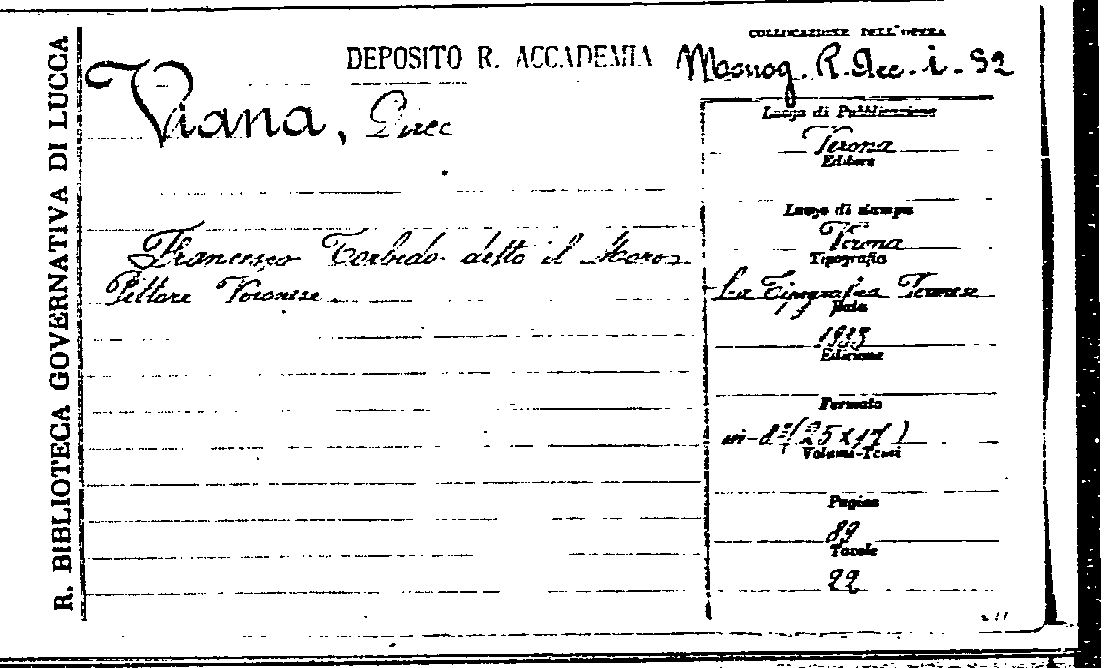 R. BIBLIOTECA GOVERNATIVA DI LUCCA
DEPOSITO R. ACCADEMIA
COLLOCAZIONE DELL'OPERA
Monog. R. Acc. i. 92
Viana,
Francesco Torbido detto il Moro
Pittore Veronese
Luogo di Pubblicazione
Verona
Editore
Luogo di stampa
Verona
Tipografia
La Tipografica Veronese
Data
1933
Edizione
Formato
in-8º (25 x 17)
Volumi-Tomi
Pagine
89
Tavole
22